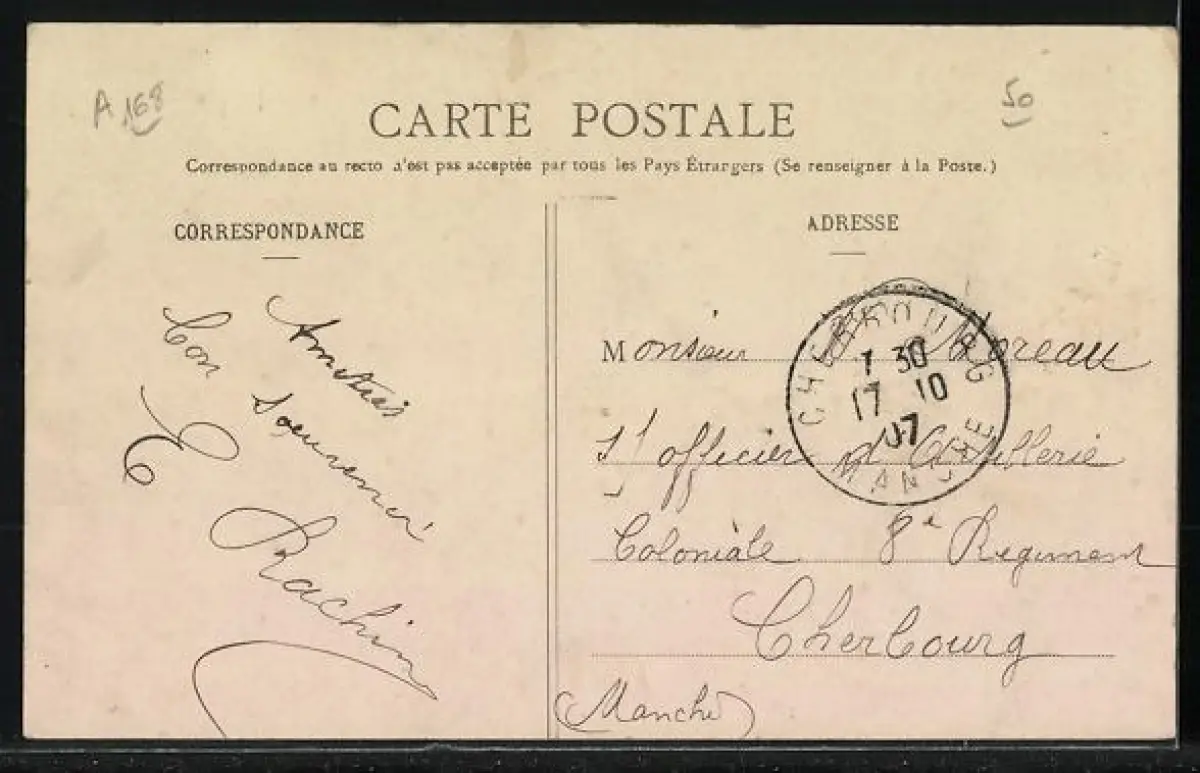 A 168
50
CARTE POSTALE
Correspondance au recto n'est pas acceptée par tous les Pays Étrangers (Se renseigner à la Poste.)
CORRESPONDANCE
Amitiés
bon souvenir
E Rachin
ADRESSE
Monsieur Moreau
S/ officier d' Artillerie
Coloniale 8e Regiment
Cherbourg
(Manche)
CHERBOURG
7 30
17 10
07
MANCHE